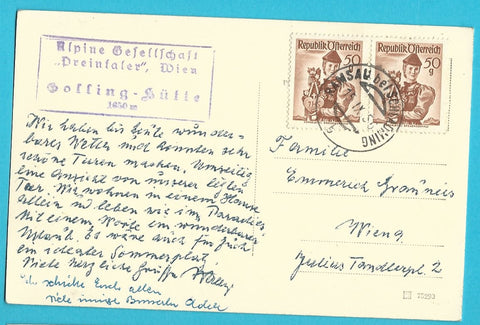 Alpine Gesellschaft
„Preintaler", Wien
Golling-Hütte
1630 m
Republik Österreich
50
g
Republik Österreich
50
g
RAMSAU bei SCHLADMING
Wir haben bis heute wunder-
bares Wetter und konnten sehr
schöne Turen machen. Umseitig
eine Ansicht von unserer letzten
Tour. Wir wohnen in einem Hause
allein und leben wie im Paradies
Mit einem Worte ein wunderbarer
Urlaub. Es wäre auch für Euch
ein idealer Sommerplatz
Viele herzliche Grüße
schicke Euch allen
viele innige
Familie
Emmerich
Wien 9
Julius Tandlerpl. 2
75293